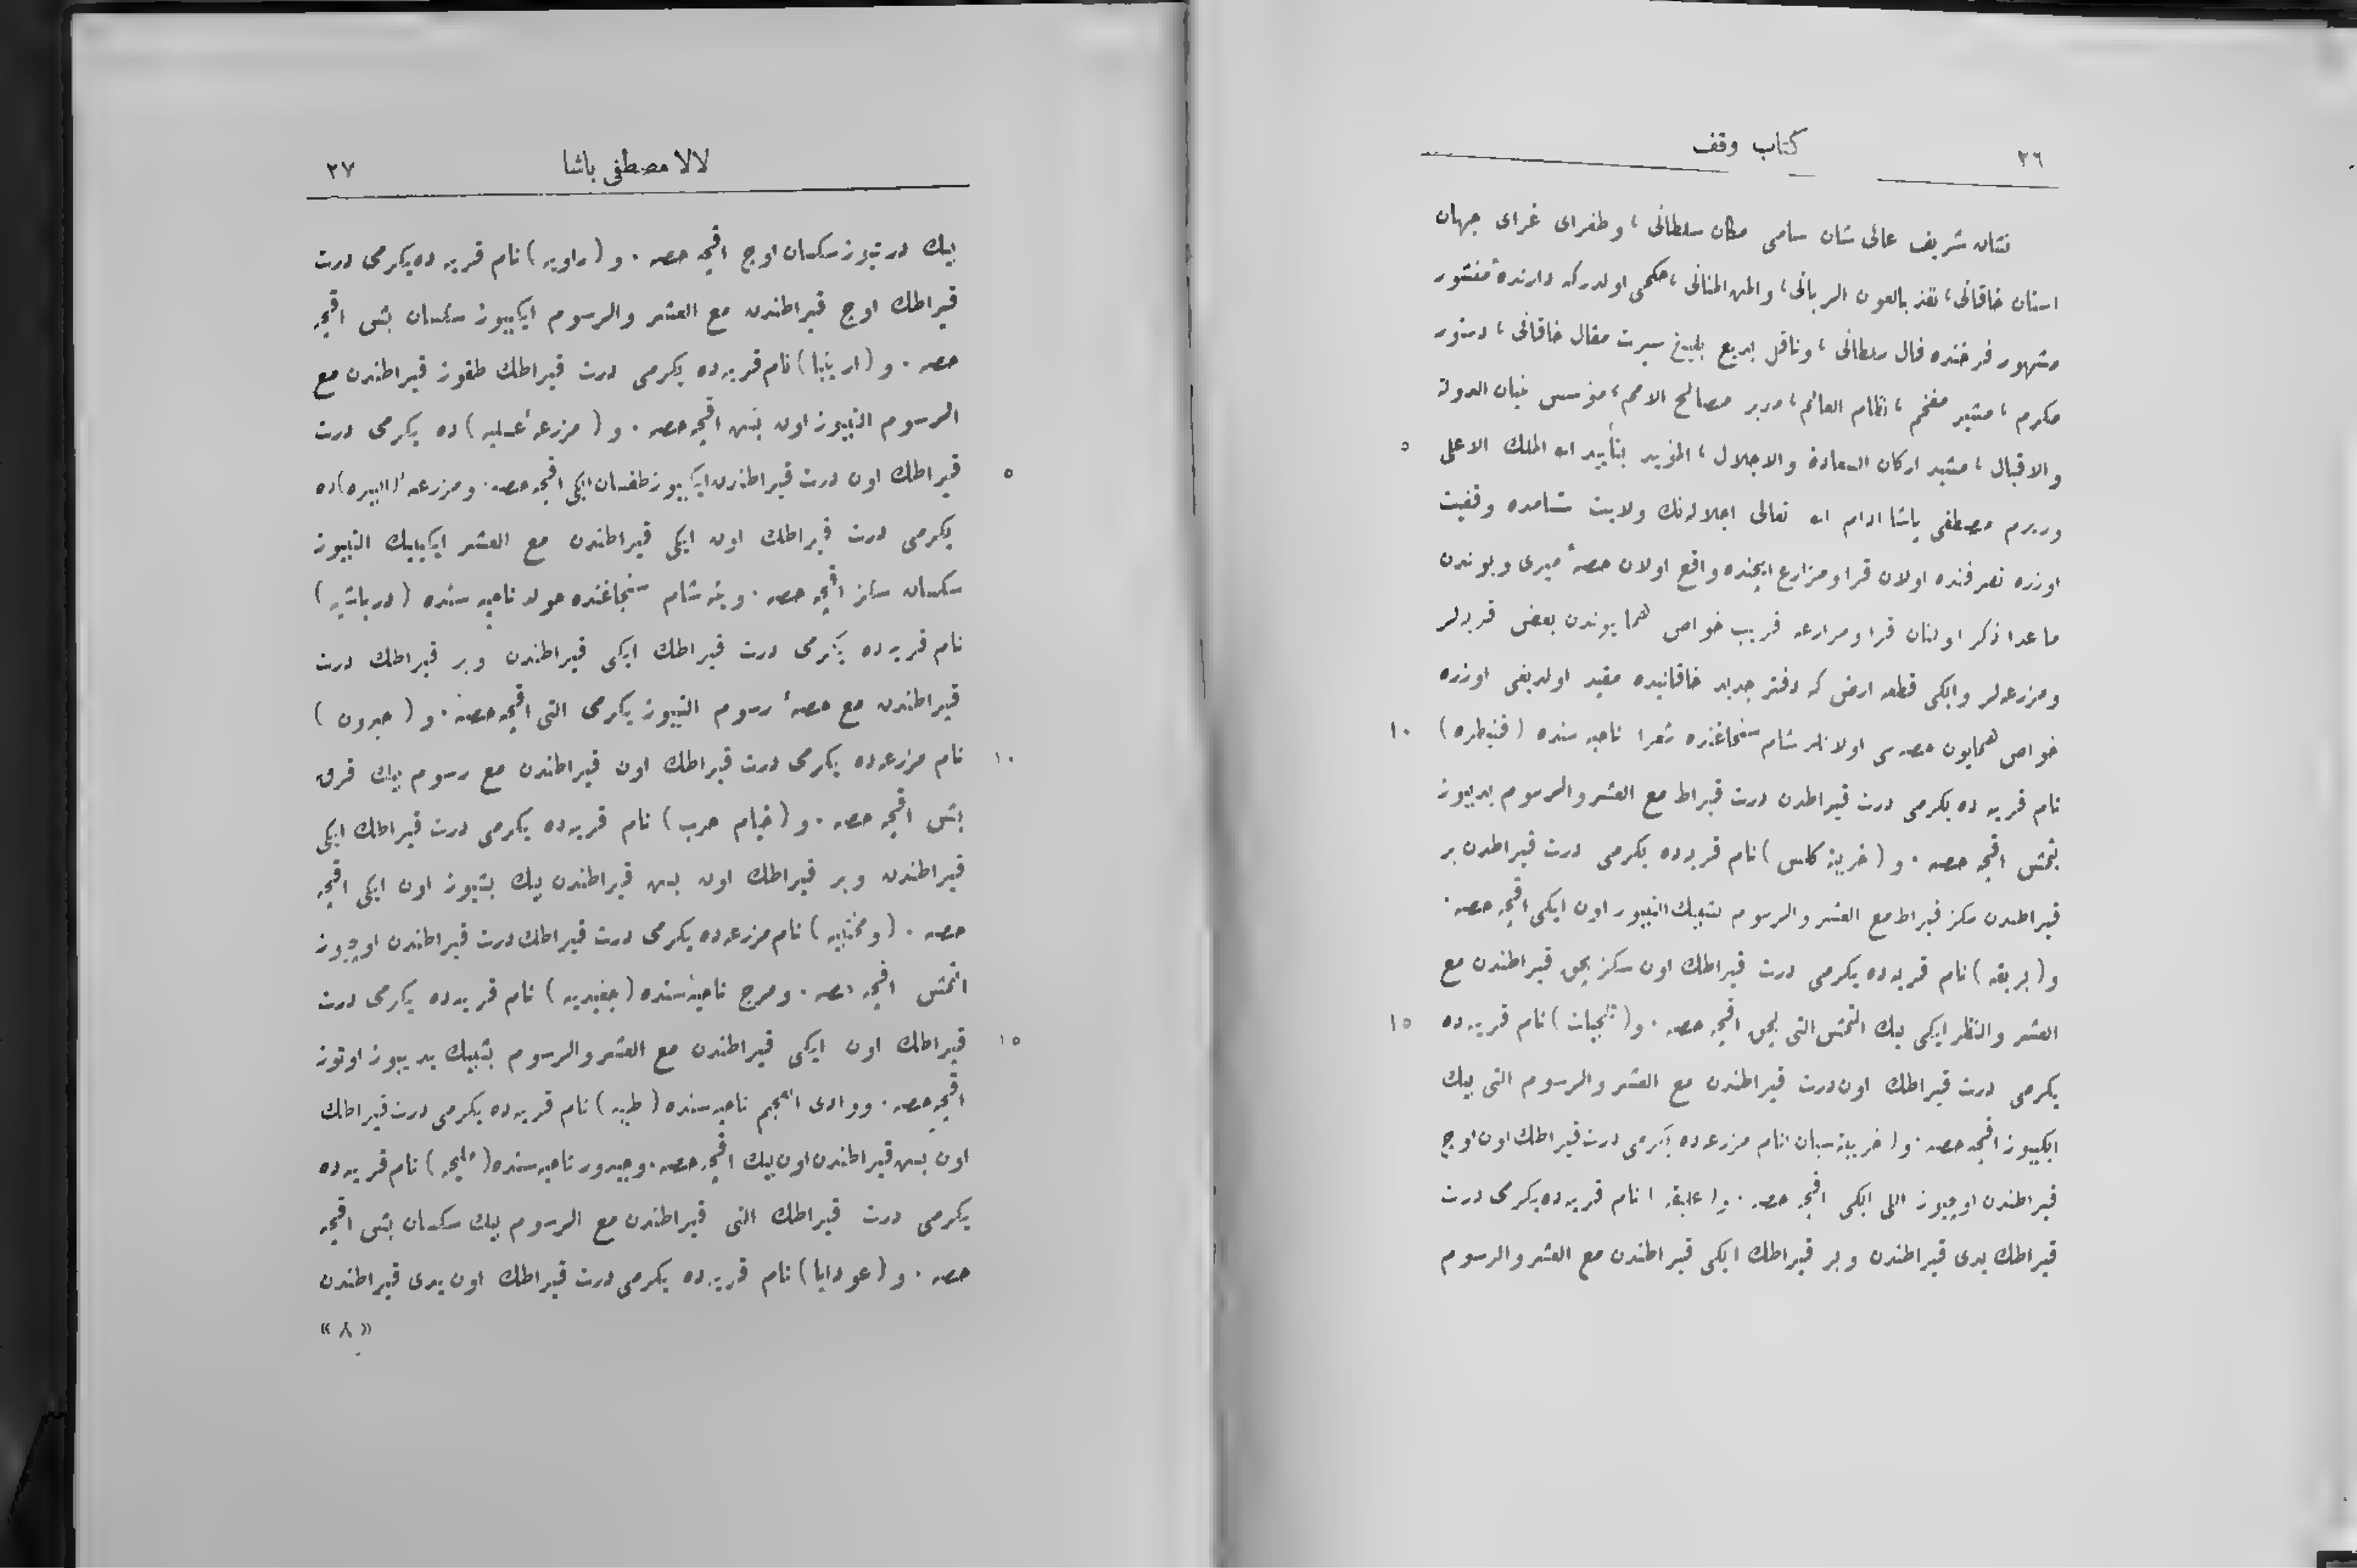 ٢٦
كتاب وقف
نشان شريف عالى شان سامى مكان سلطانى ، وطغراى غراى جهان
استان خاقانى ، نفذ بالعون الربانى ، والمن المنانى ، حكمى اولدركه دارندۀ منشور
مشهور فرخنده فال سلطانى ، وناقل بديع بليغ سيرت مقال خاقانى ، دستور
مكرم ، مشير مفخم ، نظام العالم ، مدبر مصالح الامم ، مؤسس بنيان الدولة
والاقبال ، مشيد اركان السعادة والاجلال ، المؤيد بتأييد الله الملك الاعلى
٥
وزيرم مصطفى پاشا ادام الله تعالى اجلاله نك ولايت شامده وقفيت
اوزره تصرفنده اولان قرا ومزارع ايچنده واقع اولان حصۀ ميرى وبوندن
ماعدا ذكر اولنان قرا ومزارعه قريب خواص همايوندن بعض قريه لر
ومزرعه لر وايكى قطعه ارض كه دفتر جديد خاقانيده مقيد اولديغى اوزره
خواص همايون حصه سى اولانلر شام سنجاغنده شعرا ناحيه سنده (قنيطره)
١٠
نام قريه ده يكرمى درت قيراطدن درت قيراط مع العشر والرسوم يديوز
يتمش اقچه حصه . و (خربة كاس) نام قريه ده يكرمى درت قيراطدن بر
قيراطدن سكز قيراط مع العشر والرسوم بشبيك التيوز اون ايكى اقچه حصه .
و (بريقه) نام قريه ده يكرمى درت قيراطك اون سكز بچق قيراطندن مع
العشر والنظر ايكى بيك التمش التى بچق اقچه حصه . و (ثلجيات) نام قريه ده
١٥
يكرمى درت قيراطك اون درت قيراطندن مع العشر والرسوم التى بيك
ايكيوز اقچه حصه . و (خربة سبان) نام مزرعه ده يكرمى درت قيراطك اون اوچ
قيراطندن اوچيوز اللى ايكى اقچه حصه . و (عليقه) نام قريه ده يكرمى درت
قيراطك يدى قيراطندن وبر قيراطك ايكى قيراطندن مع العشر والرسوم
لالا مصطفى پاشا
٢٧
بيك درتيوز سكسان اوچ اقچه حصه . و (راويه) نام قريه ده يكرمى درت
قيراطك اوچ قيراطندن مع العشر والرسوم ايكييوز سكسان بش اقچه
حصه . و (ارينبا) نام قريه ده يكرمى درت قيراطك طقوز قيراطندن مع
الرسوم التيوز اون بش اقچه حصه . و (مزرعۀ عسليه) ده يكرمى درت
قيراطك اون درت قيراطندن ايكييوز طقسان ايكى اقچه حصه . ومزرعۀ (البيره) ده
٥
يكرمى درت قيراطك اون ايكى قيراطندن مع العشر ايكيبيك التيوز
سكسان سكز اقچه حصه . وينه شام سنجاغنده حوله ناحيه سنده (درباشيه)
نام قريه ده يكرمى درت قيراطك ايكى قيراطندن وبر قيراطك درت
قيراطندن مع حصۀ رسوم التيوز يكرمى التى اقچه حصه . و (جبرون)
نام مزرعه ده يكرمى درت قيراطك اون قيراطندن مع رسوم بيك قرق
١٠
بش اقچه حصه . و (خيام حرب) نام قريه ده يكرمى درت قيراطك ايكى
قيراطندن وبر قيراطك اون بش قيراطندن بيك بشيوز اون ايكى اقچه
حصه . نام مزرعه ده يكرمى درت قيراطك درت قيراطندن اوچيوز
التمش اقچه حصه . ومرج ناحيه سنده (جنيديه) نام قريه ده يكرمى درت
قيراطك اون ايكى قيراطندن مع العشر والرسوم بشبيك يدييوز اوتوز
١٥
اقچه حصه . ووادى العجم ناحيه سنده (طيبه) نام قريه ده يكرمى درت قيراطك
اون بش قيراطندن اون بيك اقچه حصه . وجيدور ناحيه سنده (مليحه) نام قريه ده
يكرمى درت قيراطك التى قيراطندن مع الرسوم بيك سكسان بش اقچه
حصه . و (عودايا) نام قريه ده يكرمى درت قيراطك اون يدى قيراطندن
«٨»